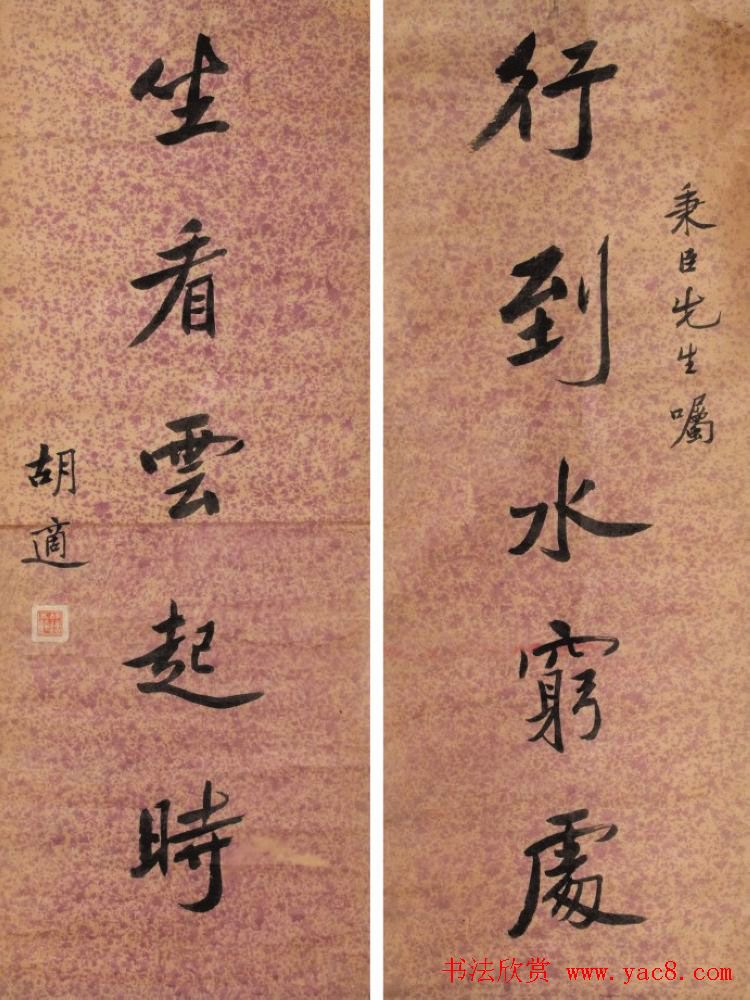 秉臣先生嘱
行到水窮處
坐看雲起時
胡適
书法欣赏 www.yac8.com